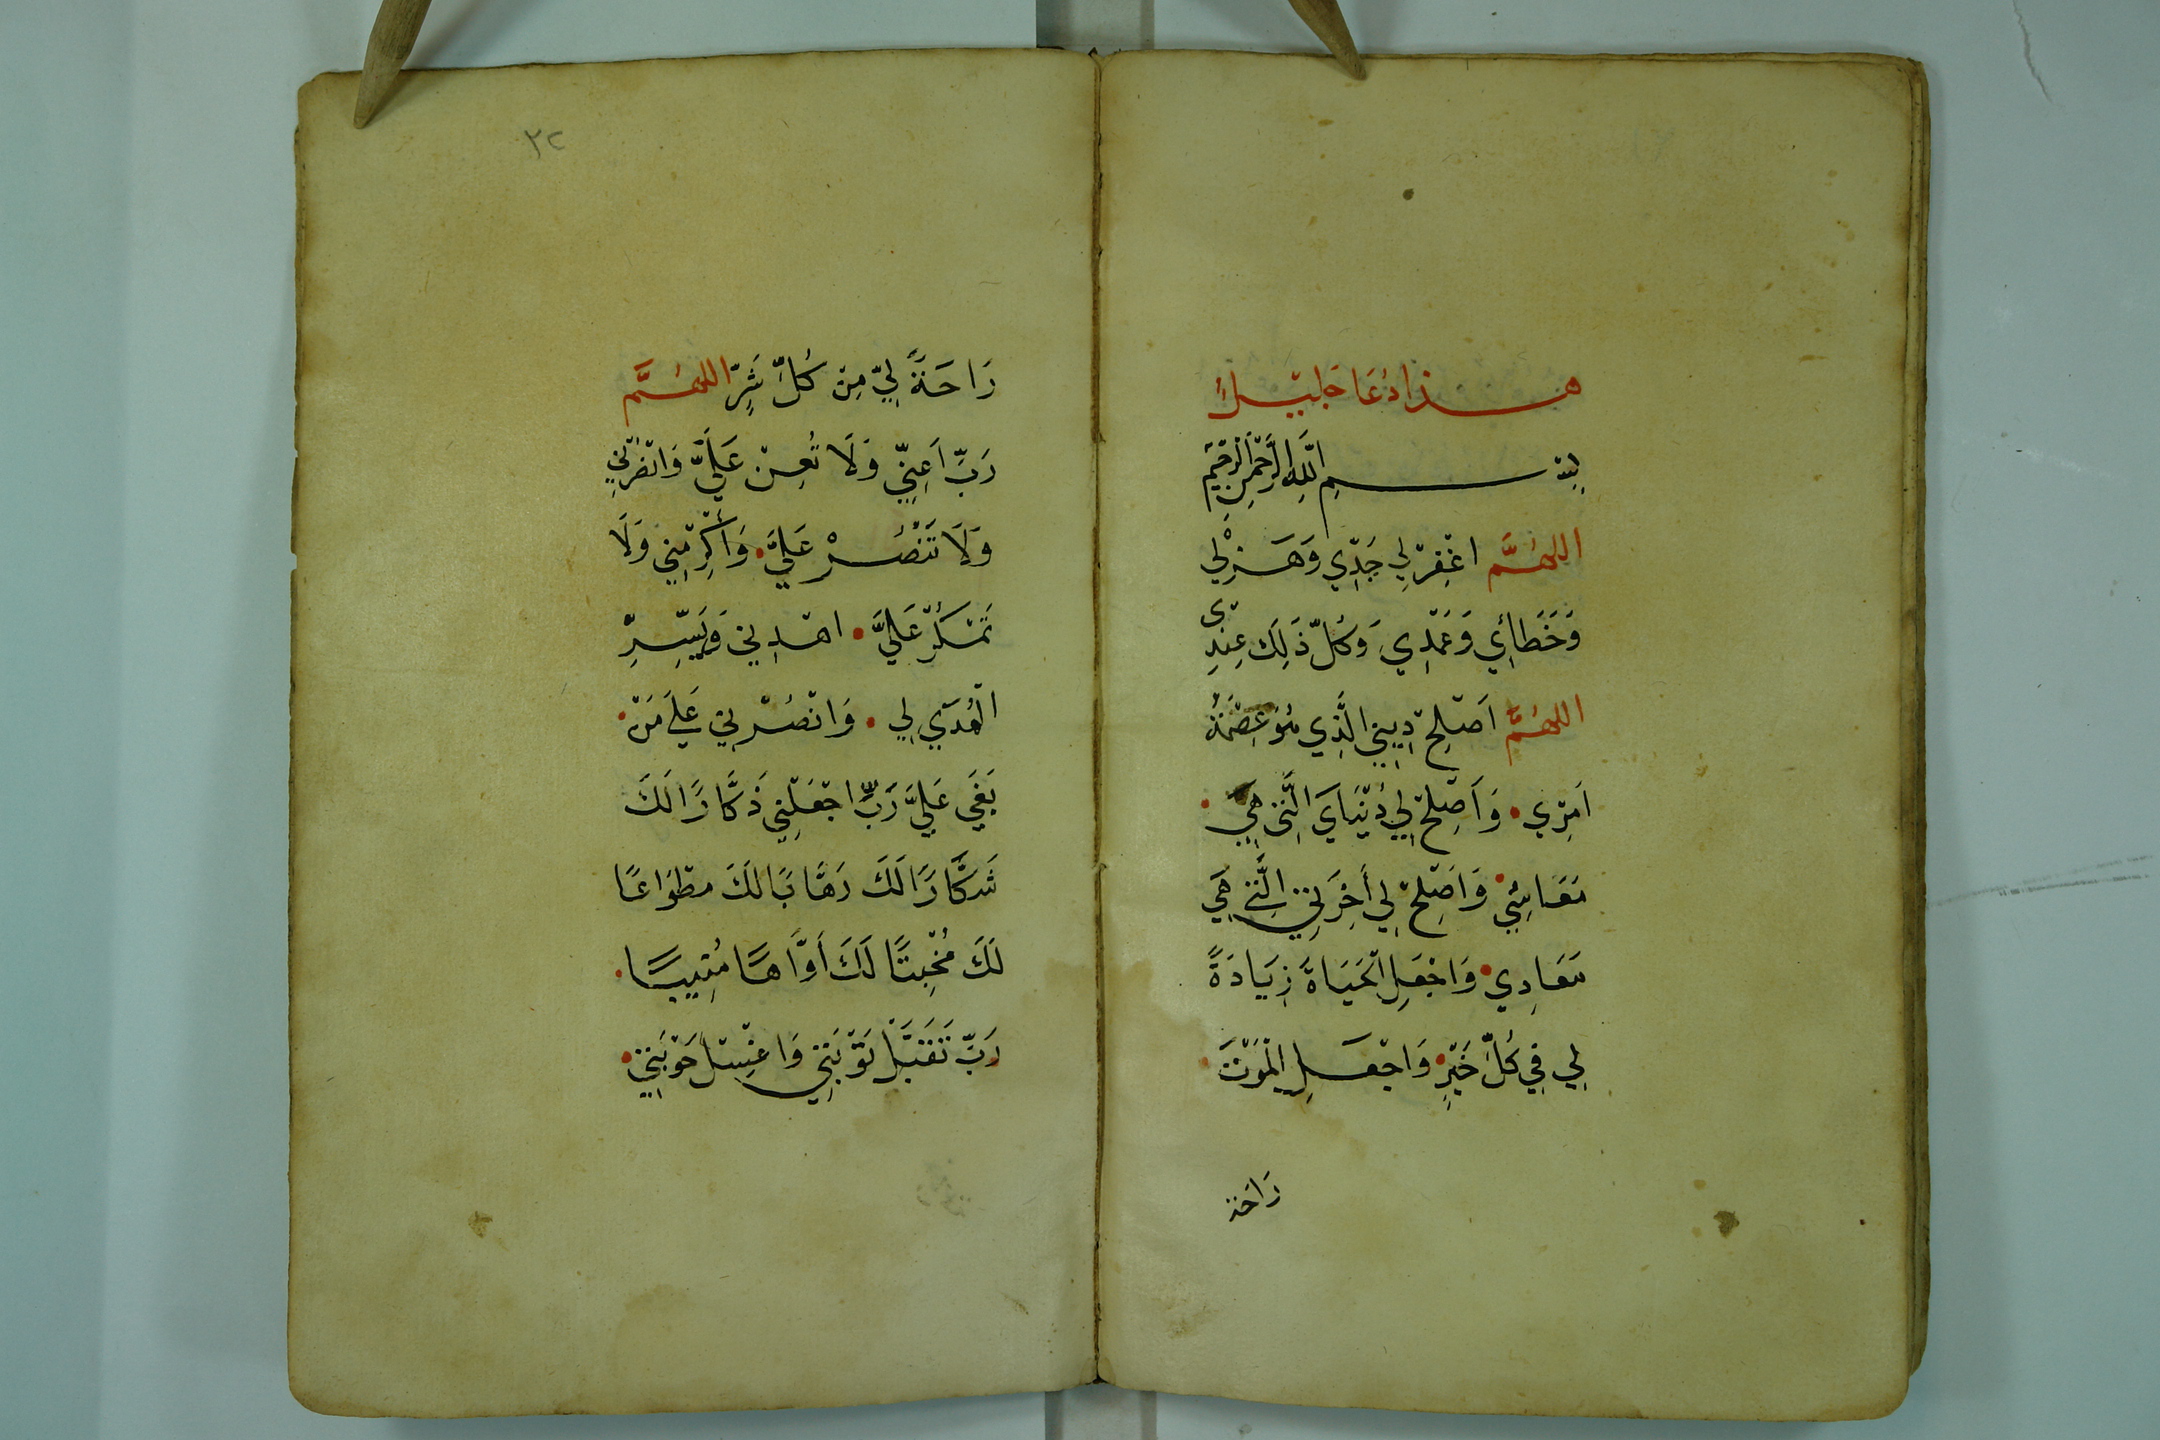 هذا دُعَا جَليـــل
بِسْــــمِ اللَّهِ الرَّحْمَنِ الرَّحِيمِ
اللهُمَّ اغْفِرْ لِي جَدِّي وَهَزْلِي
وَخَطَائِي وَعَمْدِي وَكُلُّ ذَلِكَ عِنْدِى
اللهُمَّ اَصْلِحْ دِينِي الَّذِي هُوَ عِصْمَةُ
اَمْرِي • وَاَصْلِحْ لِي دُنْيَايَ الَّتِي هِيَ •
مَعَاشِي • وَاَصْلِحْ لِي أَخِرَتِي الَّتِي هِيَ
مَعَادِي • وَاجْعَلِ الْحَيَاةَ زِيَادَةً
لِي فِي كُلِّ خَيْرٍ • وَاجْعَلِ الْمَوْتَ •
رَاحَة
٣٢
رَاحَةً لِي مِنْ كُلِّ شَرٍّ اللهُمَّ
رَبِّ اَعِنِّي وَلَا تُعِنْ عَلَيَّ وَانْصُرْنِي
وَلَا تَنْصُرْ عَلَيَّ • وَأَكْرِمْنِي وَلَا
تَمْكُرْ عَلَيَّ • اهْدِنِي وَيَسِّرِ
الْهُدَي لِي • وَانْصُرْنِي عَلَي مَنْ •
بَغَي عَلَيَّ رَبِّ اجْعَلْنِي ذَكَّارًا لَكَ
شَكَّارًا لَكَ رَهَّابًا لَكَ مطْوَاعًا
لَكَ مُخْبِتًا لَكَ أَوَّاهًا مُنِيبًا •
رَبِّ تَقَبَّلْ تَوْبَتِي وَاغْسِلْ حَوْبَتِي •